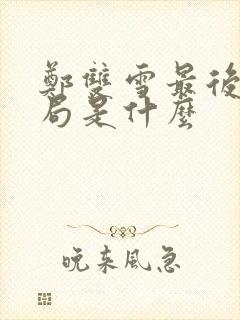 鄭雙雪最後
局是什麼
晚來風急